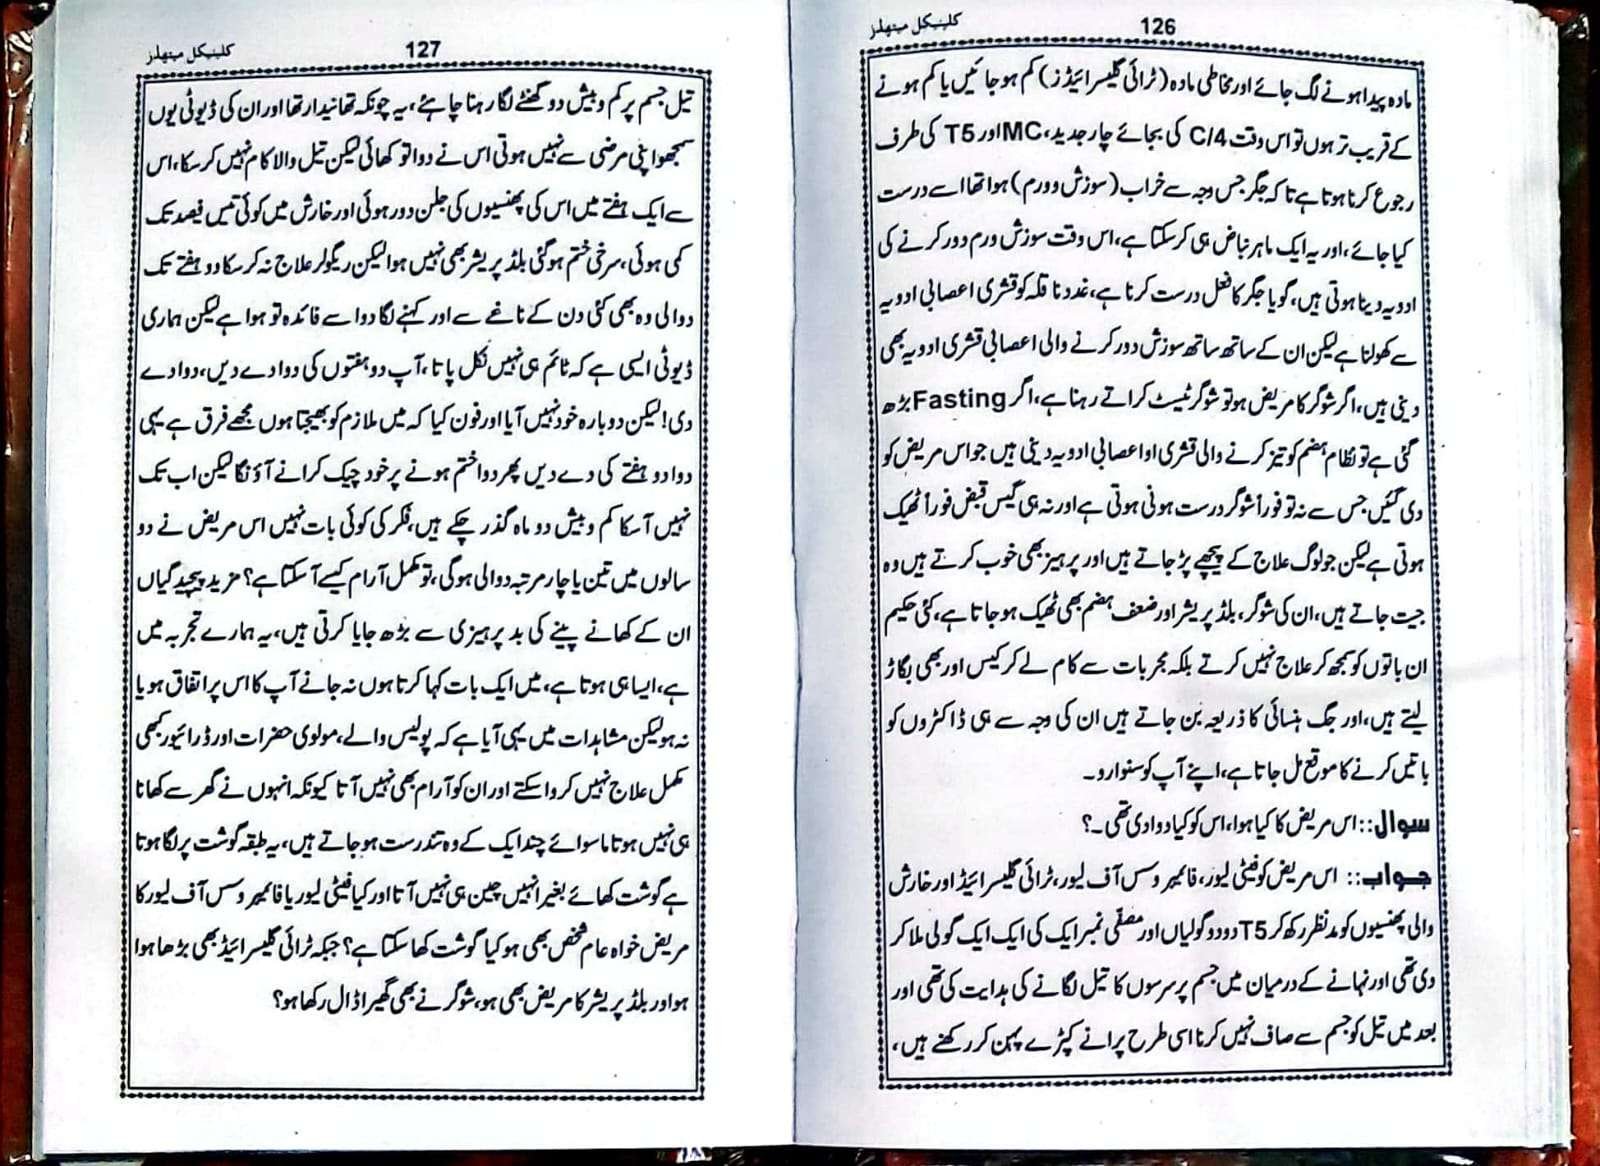 126
کلینیکل میتھڈز
مادہ پیدا ہونے لگ جائے اور مخاطی مادہ (ٹرائی گلیسرائیڈز) کم ہو جائیں یا کم ہونے
کے قریب تر ہوں تو اس وقت C/4 کی بجائے چار جدید، MC اور T5 کی طرف
رجوع کرنا ہوتا ہے تاکہ جگر جس وجہ سے خراب (سوزش و ورم) ہوا تھا اسے درست
کیا جائے، اور یہ ایک ماہر نباض ہی کر سکتا ہے، اس وقت سوزش ورم دور کرنے کی
ادویہ دینا ہوتی ہیں، گویا جگر کا فعل درست کرنا ہے، غدد ناقلہ کو قشری اعصابی ادویہ
سے کھولنا ہے لیکن ان کے ساتھ ساتھ سوزش دور کرنے والی اعصابی قشری ادویہ بھی
دینی ہیں، اگر شوگر کا مریض ہو تو شوگر ٹیسٹ کراتے رہنا ہے، اگر Fasting بڑھ
گئی ہے تو نظام ہضم کو تیز کرنے والی قشری او اعصابی ادویہ دینی ہیں جو اس مریض کو
دی گئیں جس سے نہ تو فوراً شوگر درست ہونی ہوتی ہے اور نہ ہی گیس قبض فوراً ٹھیک
ہوتی ہے لیکن جو لوگ علاج کے پیچھے پڑ جاتے ہیں اور پرہیز بھی خوب کرتے ہیں وہ
جیت جاتے ہیں، ان کی شوگر، بلڈ پریشر اور ضعف ہضم بھی ٹھیک ہو جاتا ہے، کئی حکیم
ان باتوں کو سمجھ کر علاج نہیں کرتے بلکہ مجربات سے کام لے کر کیس اور بھی بگاڑ
لیتے ہیں، اور جگ ہنسائی کا ذریعہ بن جاتے ہیں ان کی وجہ سے ہی ڈاکٹروں کو
باتیں کرنے کا موقع مل جاتا ہے، اپنے آپ کو سنوارو۔
سوال:: اس مریض کا کیا ہوا، اس کو کیا دوا دی تھی۔؟
جواب:: اس مریض کو فیٹی لیور، فائبروسس آف لیور، ٹرائی گلیسرائیڈ اور خارش
والی پھنسیوں کو مدنظر رکھ کر T5 دو دو گولیاں اور مصفّی نمبر ایک کی ایک ایک گولی ملا کر
دی تھی اور نہانے کے درمیان میں جسم پر سرسوں کا تیل لگانے کی ہدایت کی تھی اور
بعد میں تیل کو جسم سے صاف نہیں کرنا اسی طرح پرانے کپڑے پہن کر رکھنے ہیں،
127
کلینیکل میتھڈز
تیل جسم پر کم و بیش دو گھنٹے لگا رہنا چاہئے، یہ چونکہ تھانیدار تھا اور ان کی ڈیوٹی یوں
سمجھو اپنی مرضی سے نہیں ہوتی اس نے دوا تو کھائی لیکن تیل والا کام نہیں کر سکا، اس
سے ایک ہفتے میں اس کی پھنسیوں کی جلن دور ہوئی اور خارش میں کوئی تیس فیصد تک
کمی ہوئی، سرخی ختم ہو گئی بلڈ پریشر بھی نہیں ہوا لیکن ریگولر علاج نہ کر سکا دو ہفتے تک
دوا لی وہ بھی کئی دن کے ناغے سے اور کہنے لگا دوا سے فائدہ تو ہوا ہے لیکن ہماری
ڈیوٹی ایسی ہے کہ ٹائم ہی نہیں نکل پاتا، آپ دو ہفتوں کی دوا دے دیں، دوا دے
دی! لیکن دوبارہ خود نہیں آیا اور فون کیا کہ میں ملازم کو بھیجتا ہوں مجھے فرق ہے یہی
دوا دو ہفتے کی دے دیں پھر دوا ختم ہونے پر خود چیک کرانے آؤنگا لیکن اب تک
نہیں آ سکا کم و بیش دو ماہ گذر چکے ہیں، فکر کی کوئی بات نہیں اس مریض نے دو
سالوں میں تین یا چار مرتبہ دوا لی ہوگی، تو مکمل آرام کیسے آ سکتا ہے؟ مزید پیچیدگیاں
ان کے کھانے پینے کی بد پرہیزی سے بڑھ جایا کرتی ہیں، یہ ہمارے تجربہ میں
ہے، ایسا ہی ہوتا ہے، میں ایک بات کہا کرتا ہوں نہ جانے آپ کا اس پر اتفاق ہو یا
نہ ہو لیکن مشاہدات میں یہی آیا ہے کہ پولیس والے، مولوی حضرات اور ڈرائیور کبھی
مکمل علاج نہیں کروا سکتے اور ان کو آرام بھی نہیں آتا کیونکہ انہوں نے گھر سے کھانا
ہی نہیں ہوتا ماسوائے چند ایک کے وہ تندرست ہو جاتے ہیں، یہ طبقہ گوشت پر لگا ہوتا
ہے گوشت کھائے بغیر انہیں چین ہی نہیں آتا اور کیا فیٹی لیور یا فائبروسس آف لیور کا
مریض خواہ عام شخص بھی ہو کیا گوشت کھا سکتا ہے؟ جبکہ ٹرائی گلیسرائیڈ بھی بڑھا ہوا
ہو اور بلڈ پریشر کا مریض بھی ہو، شوگر نے بھی گھیرا ڈال رکھا ہو؟